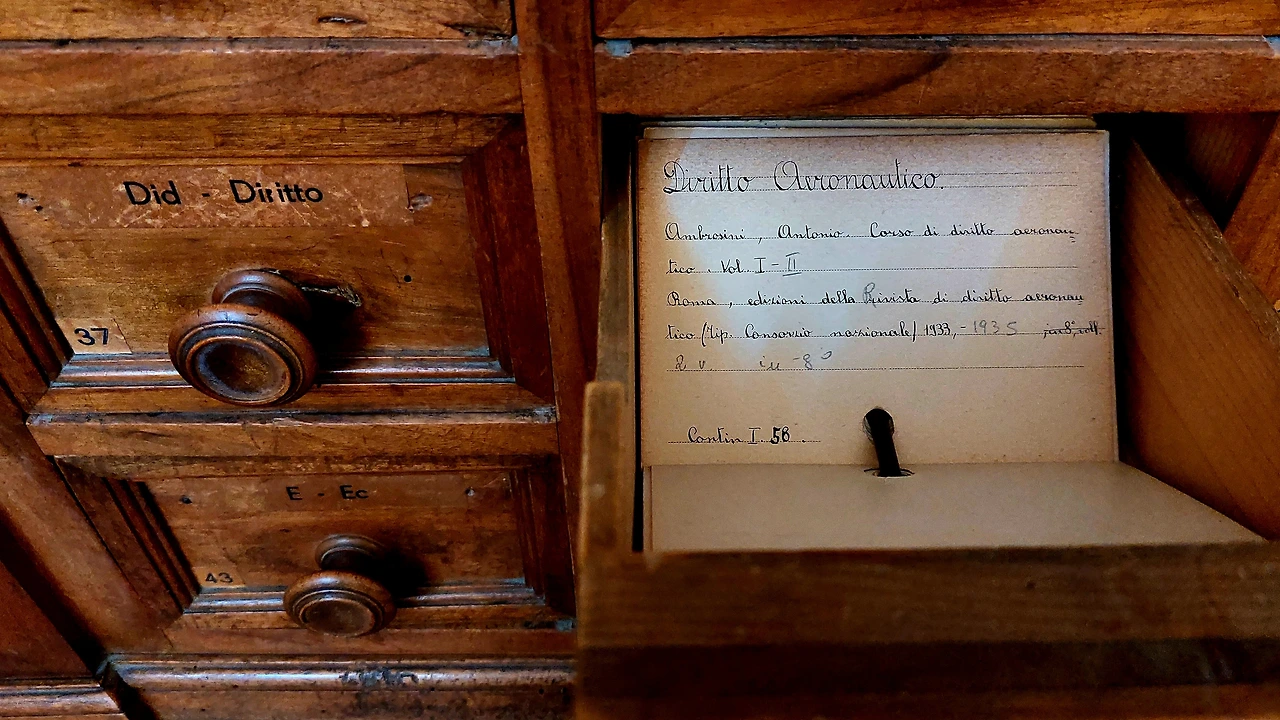 Did - Diritto
37
E - Ec
43
Diritto Aeronautico.
Ambrosini, Antonio. Corso di diritto aeronau-
tico. Vol. I - II
Roma, edizioni della Rivista di diritto aeronau
tico (Tip. Consorzio nazionale) 1933, - 1935
2 v in -8°
Contin I. 58.